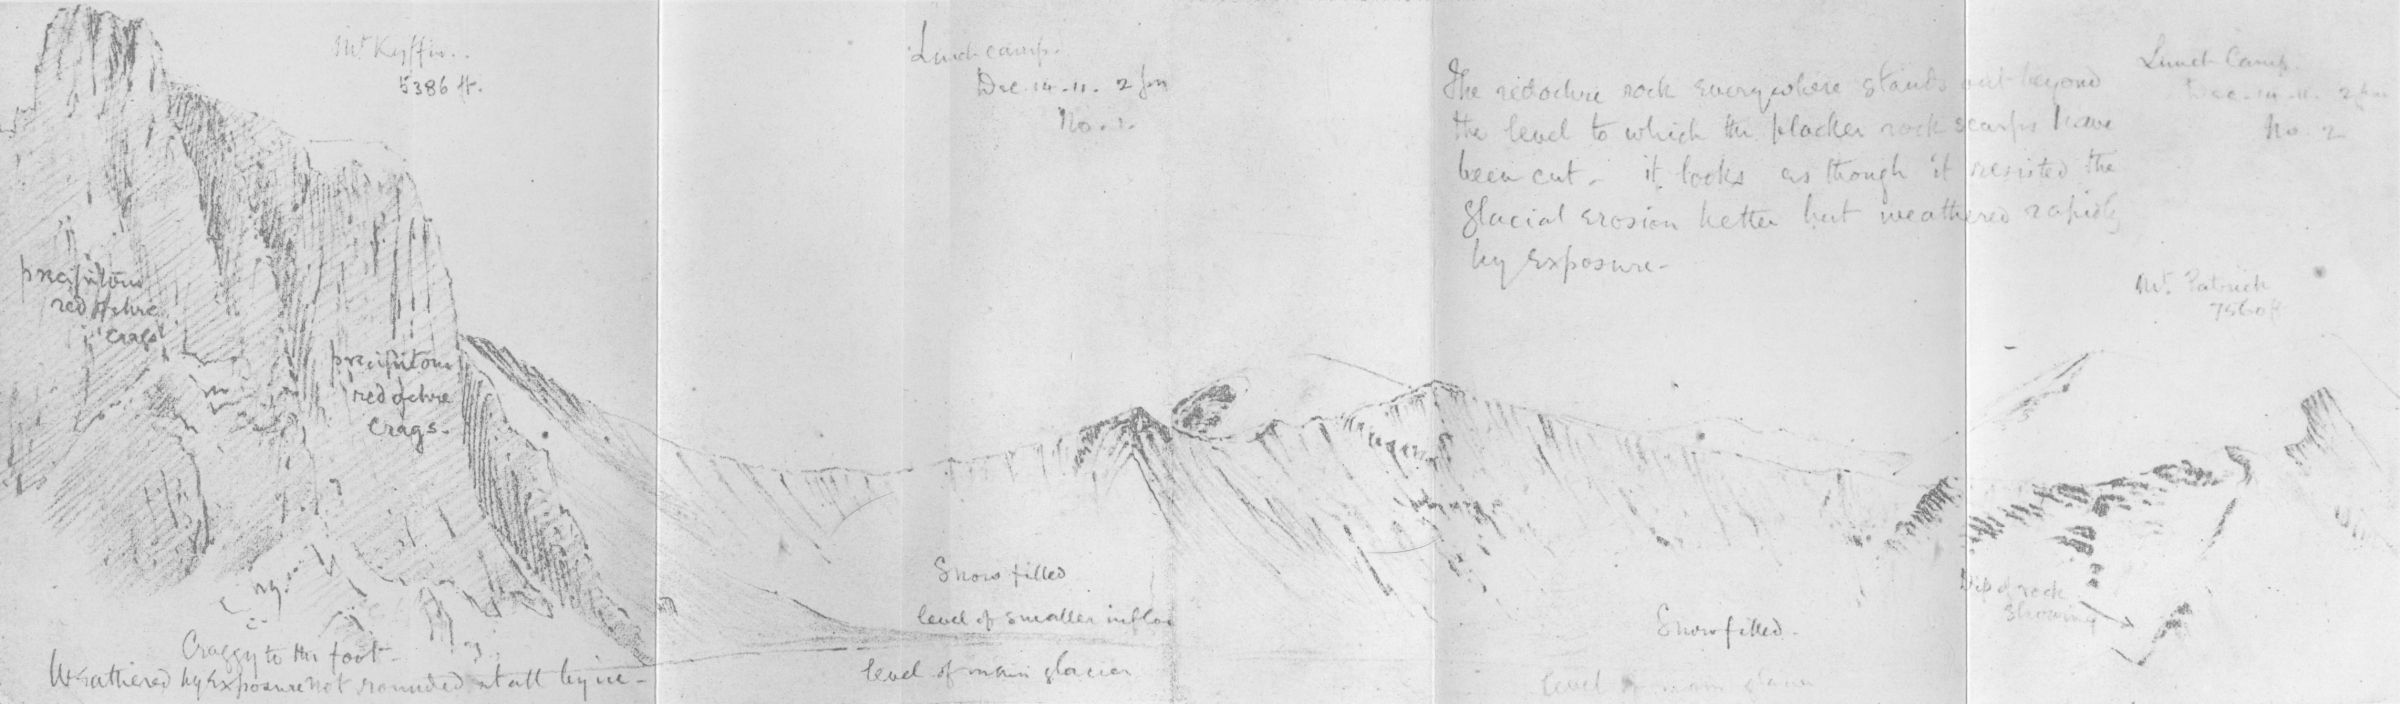 Mt Kyffin.
5386 ft.
Lunch camp.
Dec. 14. 11. 2 pm
No. 1.
The red ochre rock everywhere stands out beyond
the level to which the blacker rock scarps have
been cut - it looks as though it resisted the
glacial erosion better but weathered rapidly
by exposure -
Lunch Camp.
Dec. 14. 11. 2 pm
No. 2
Mt. Patrick
ft
precipitous
red ochre
crags
precipitous
red ochre
crags.
Craggy to the foot -
Weathered by exposure not rounded at all by ice -
Snow filled
level of smaller
level of main glacier
Snow filled -
level of main glacier
Dip of rock
showing